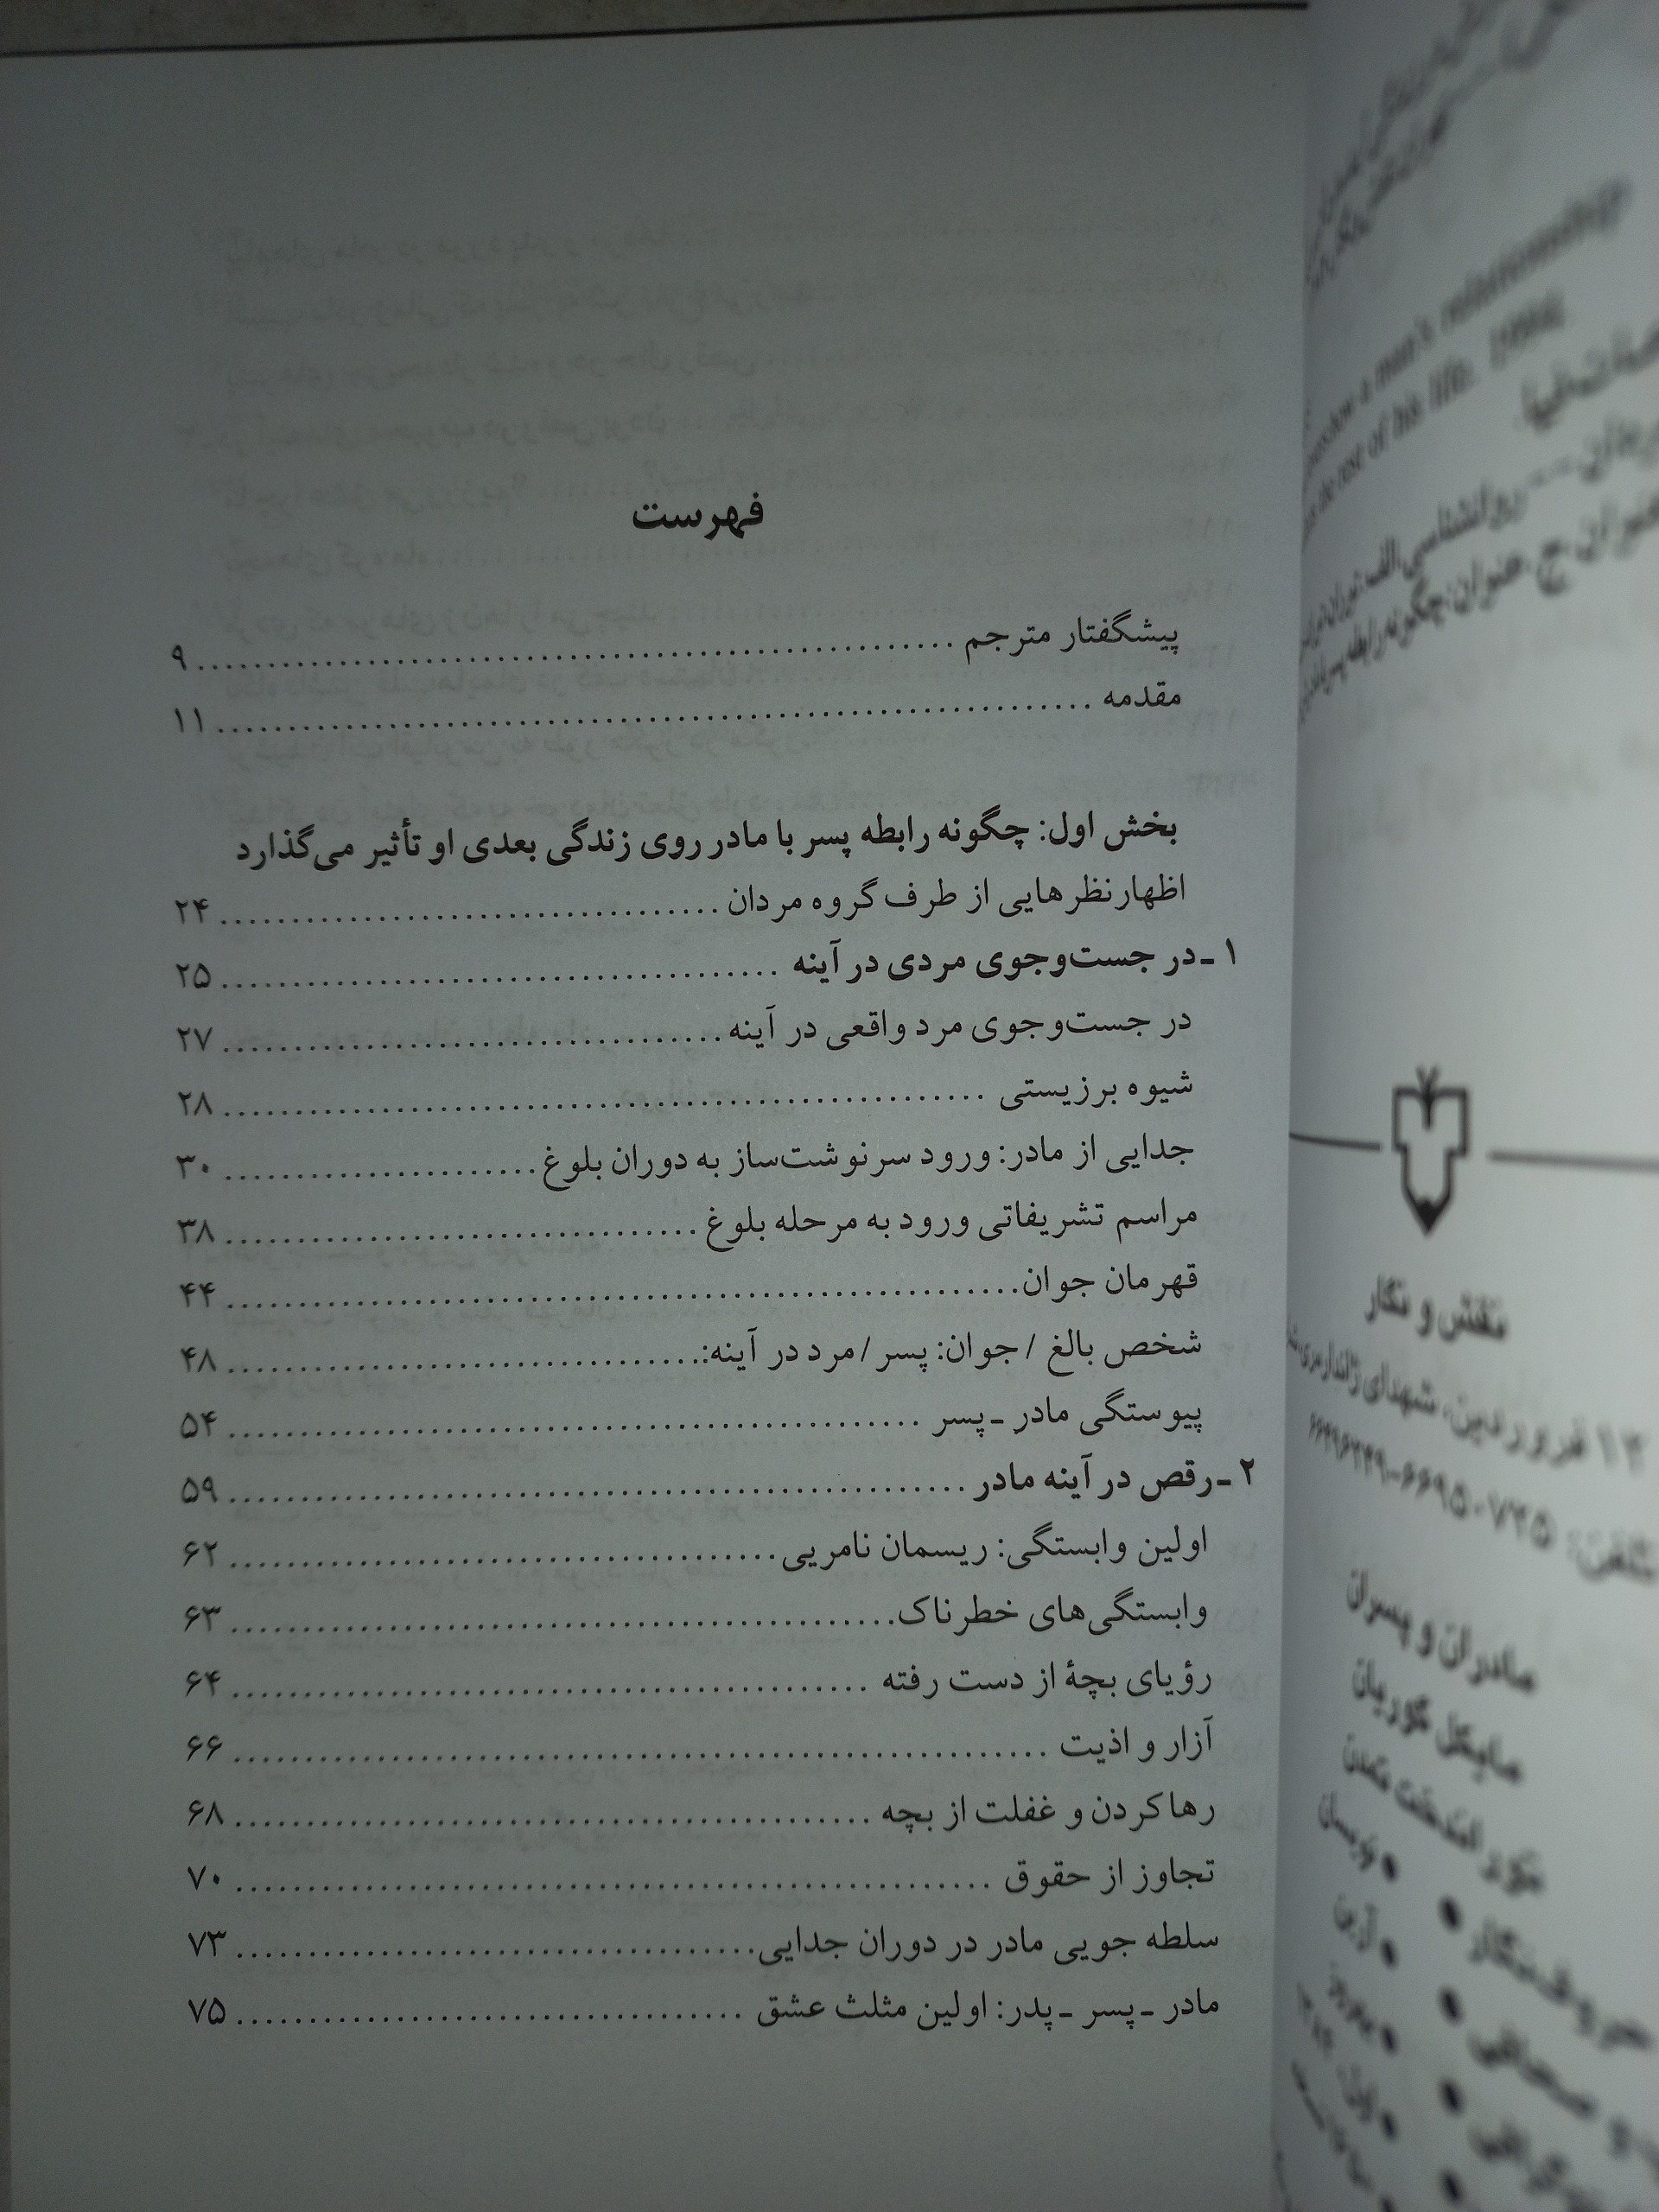 فهرست
پیشگفتار مترجم ........ ۹
مقدمه ........ ۱۱
بخش اول: چگونه رابطه پسر با مادر روی زندگی بعدی او تأثیر می‌گذارد
اظهارنظرهایی از طرف گروه مردان ........ ۲۴
۱ ـ در جست‌وجوی مردی در آینه ........ ۲۵
در جست‌وجوی مرد واقعی در آینه ........ ۲۷
شیوه برزیستی ........ ۲۸
جدایی از مادر: ورود سرنوشت‌ساز به دوران بلوغ ........ ۳۰
مراسم تشریفاتی ورود به مرحله بلوغ ........ ۳۸
قهرمان جوان ........ ۴۴
شخص بالغ / جوان: پسر / مرد در آینه: ........ ۴۸
پیوستگی مادر ـ پسر ........ ۵۴
۲ ـ رقص در آینه مادر ........ ۵۹
اولین وابستگی: ریسمان نامریی ........ ۶۲
وابستگی‌های خطرناک ........ ۶۳
رؤیای بچهٔ از دست رفته ........ ۶۴
آزار و اذیت ........ ۶۶
رها کردن و غفلت از بچه ........ ۶۸
تجاوز از حقوق ........ ۷۰
سلطه جویی مادر در دوران جدایی ........ ۷۳
مادر ـ پسر ـ پدر: اولین مثلث عشق ........ ۷۵
a man's relationship
rest of his life. 1994
روانشناسی الف.
ج. عنوان: چگونه رابطه پسر
نقش و نگار
۱۲ فروردین، شهدای ژاندارمری
تلفن: ۶۶۹۵۰۷۲۵-
مادران و پسران
مایکل گوریان